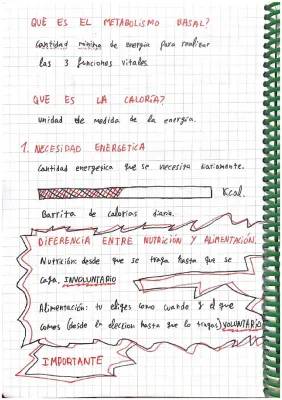 QUE ES EL METABOLISMO BASAL?
Cantidad minima de energia para realizar
las 3 funciones vitales.
QUE ES LA CALORÍA?
Unidad de medida de la energia.
1. NECESIDAD ENERGÉTICA
Cantidad energetica que se necesita diariamente.
Kcal.
Barrita de calorias diaria.
DIFERENCIA ENTRE NUTRICIÓN Y ALIMENTACIÓN.
Nutrición: desde que se traga hasta que se
caga. INVOLUNTARIO
Alimentación: tu eliges como cuando y el que
comes (desde la eleccion hasta que lo tragas) VOLUNTARIO
IMPORTANTE